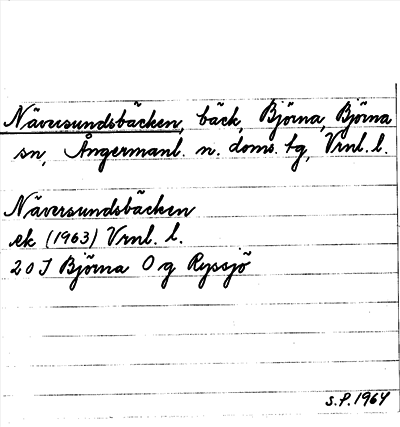 Näversundsbäcken, bäck, Björna, Björna
sn, Ångermanl. n. doms. tg, Vrnl. l.
Näversundsbäcken
ek (1963) Vrnl. l.
20 J Björna O g Ryssjö
S.P. 1964